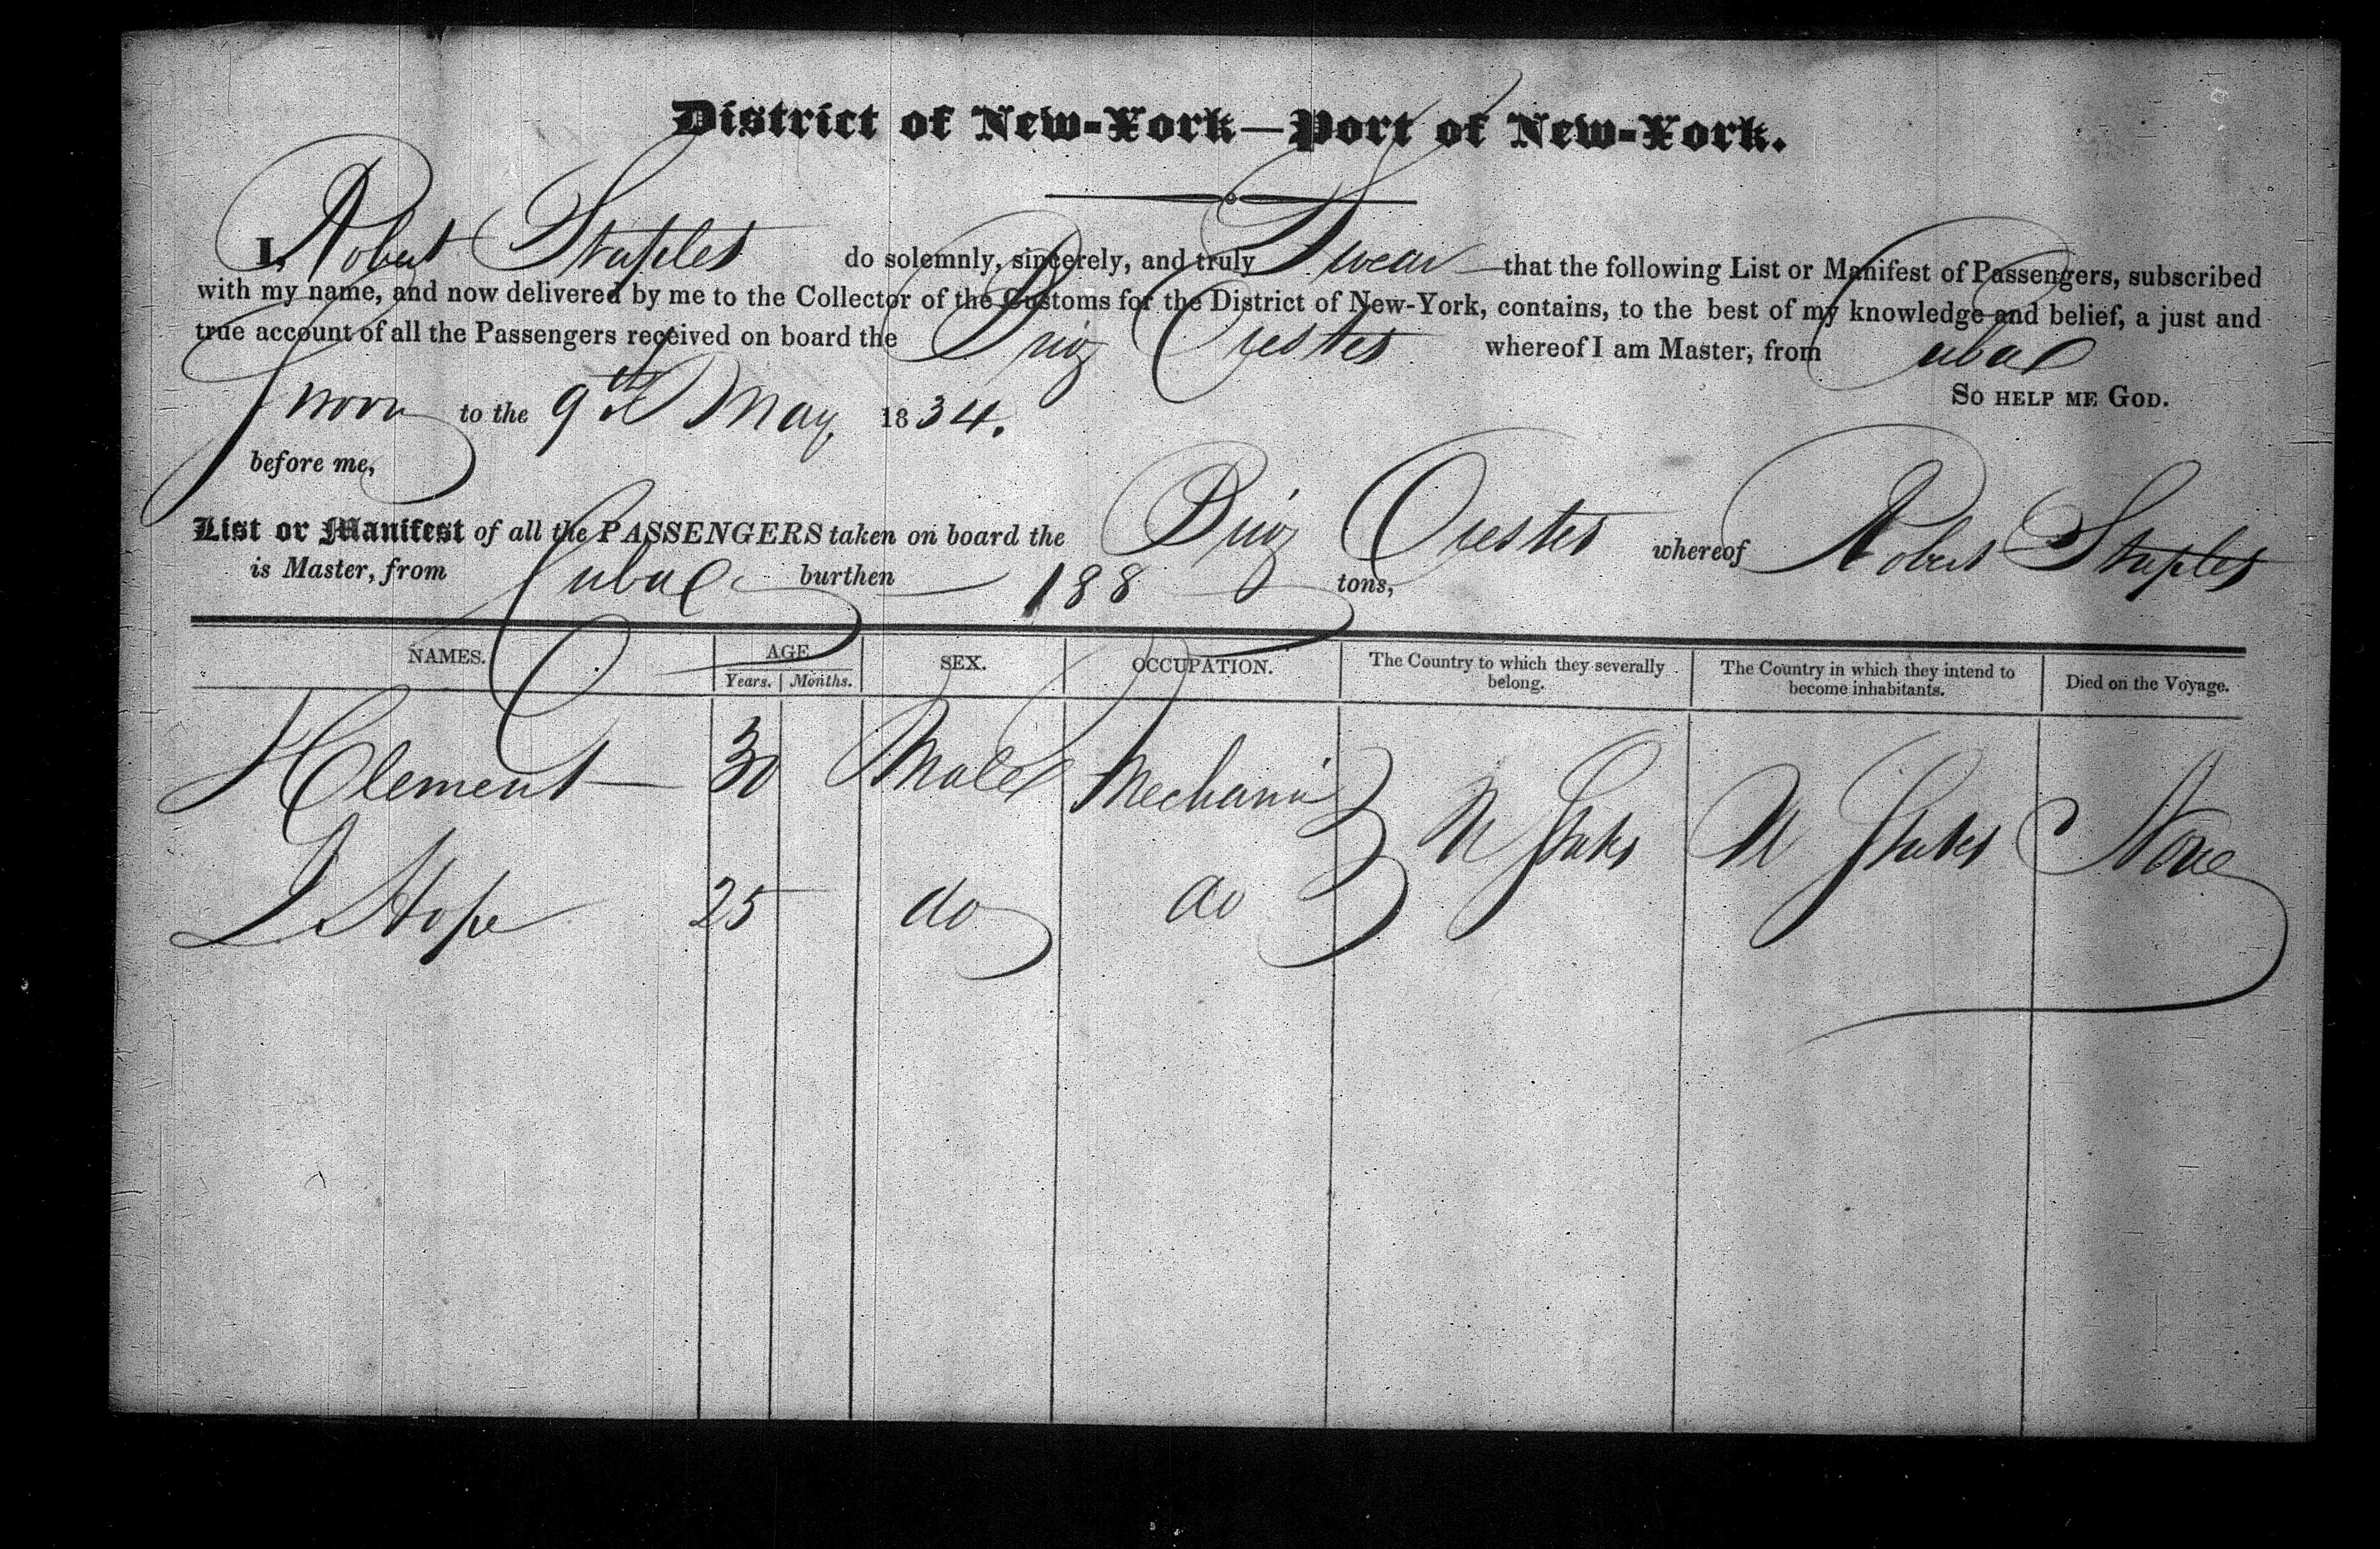 District of New-York—Port of New-York.
I, Robert Staples do solemnly, sincerely, and truly Swear that the following List or Manifest of Passengers, subscribed
with my name, and now delivered by me to the Collector of the Customs for the District of New-York, contains, to the best of my knowledge and belief, a just and
true account of all the Passengers received on board the Brig Orestes whereof I am Master, from Cuba
So help me God.
Sworn to the 9th May, 1834.
before me,
List or Manifest of all the PASSENGERS taken on board the Brig Orestes whereof Robert Staples
is Master, from Cuba burthen 188 tons,
NAMES. AGE SEX. OCCUPATION. The Country to which they severally belong. The Country in which they intend to become inhabitants. Died on the Voyage.
Years. Months.
Clement 30 Male Mechanic U States U States None
Hope 25 do do